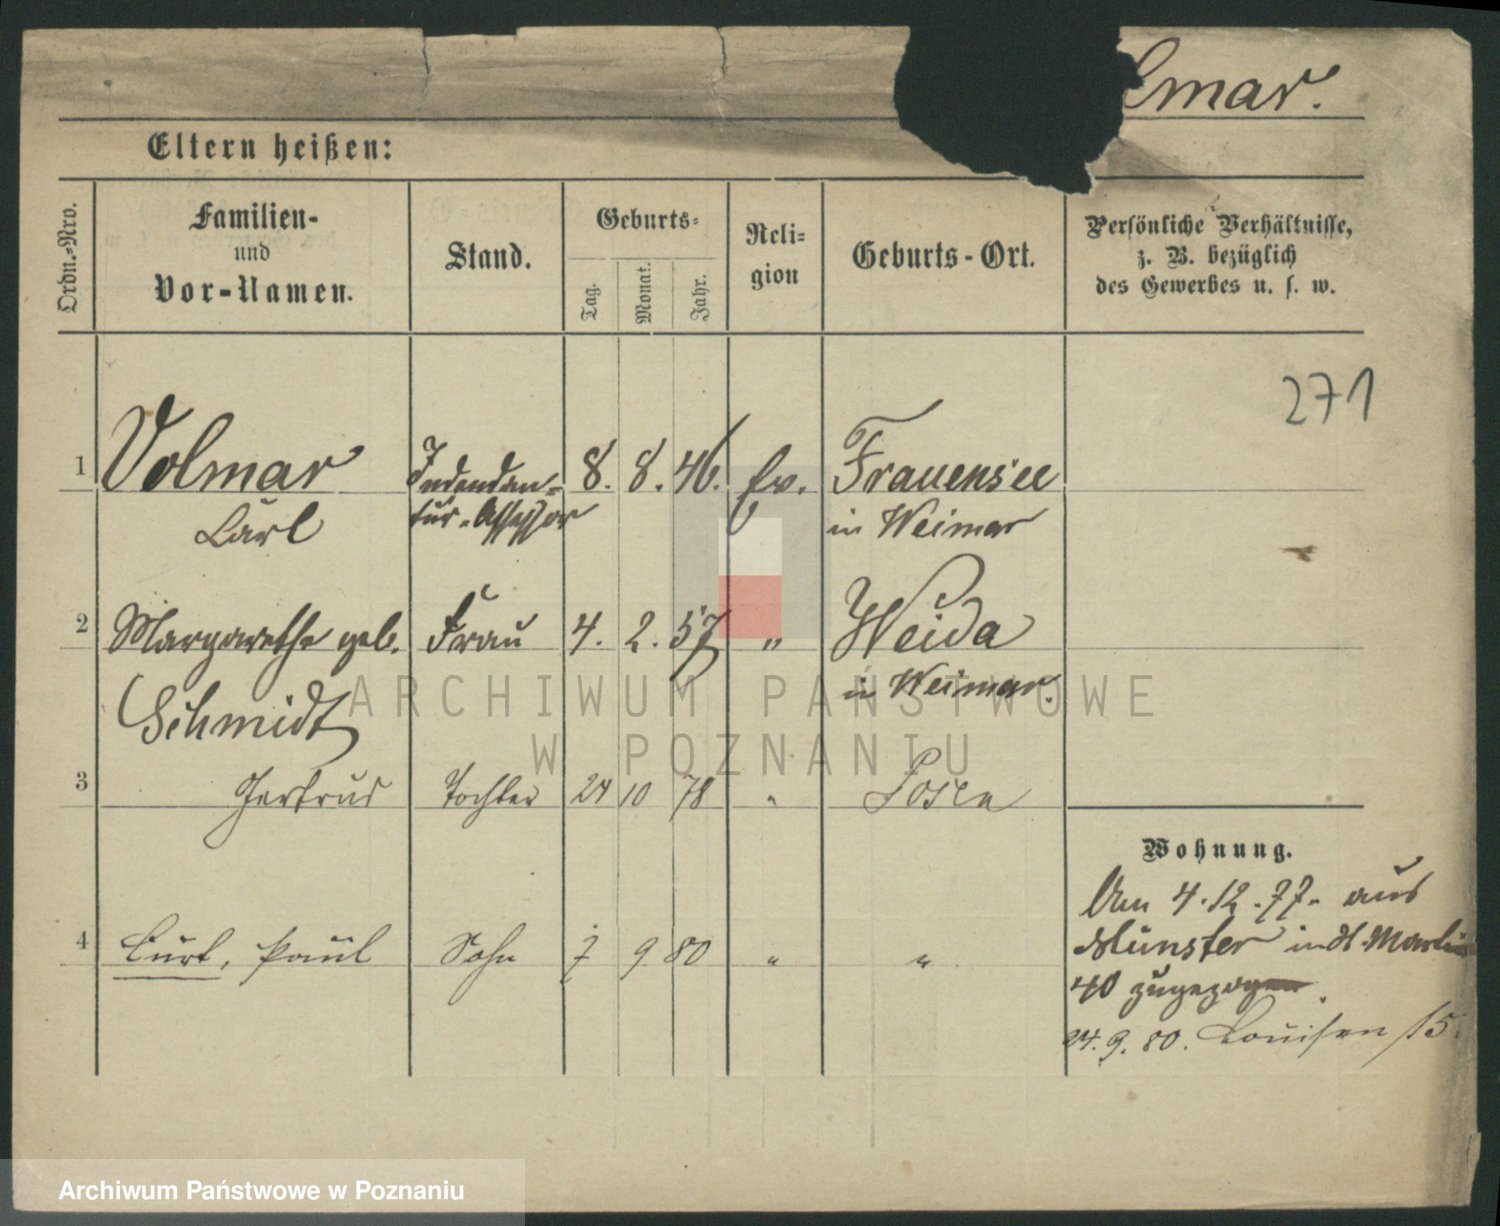 lmar.
Eltern heißen:
Ordn.-Nro.
Familien-
und
Vor-Namen.
Stand.
Geburts-
Tag.
Monat.
Jahr.
Reli-
gion
Geburts-Ort.
Persönliche Verhältnisse,
z. B. bezüglich
des Gewerbes u. s. w.
271
1 Volmar Intendan- 8. 8. 46. Ev. Frauensee
Carl tur-Assessor in Weimar
2 Margarethe geb. Frau 4. 2. 57 " Weida
Schmidt in Weimar.
3 Gertrud Tochter 24 10 78 " Posen
4 Curt, Paul Sohn 7 9 80 " "
Wohnung.
Am 4.12.77. aus
Münster in St. Martin
40 zugezogen.
24.9.80. Louisen 15.
ARCHIWUM PAŃSTWOWE
W POZNANIU
Archiwum Państwowe w Poznaniu